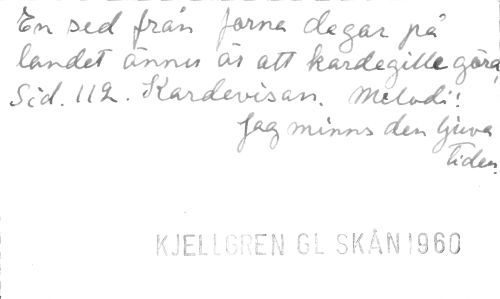 En sed från forna degar på
landet ännu är att kardegille göra
Sid. 112. Kardevisan. Melodi:
Jag minns den ljuva
tiden.
KJELLGREN GL SKÅN 1960